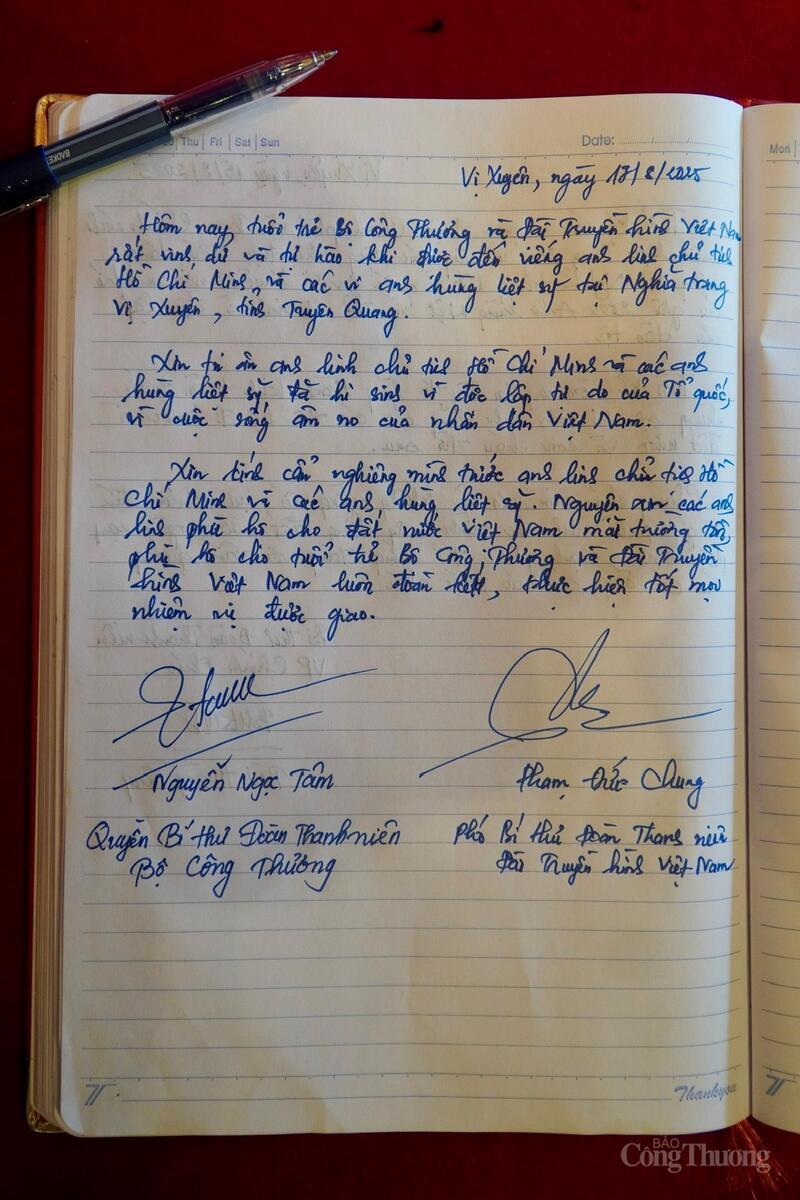 BAOKE
Thu | Fri | Sat | Sun
Date:
Mon
Vị Xuyên, ngày 17/8/2025
Hôm nay, tuổi trẻ Bộ Công Thương và Đài Truyền hình Việt Nam
rất vinh dự và tự hào khi được đến viếng anh linh chủ tịch
Hồ Chí Minh, và các vị anh hùng liệt sỹ tại Nghĩa trang
Vị Xuyên, tỉnh Tuyên Quang.
Xin tri ân anh linh chủ tịch Hồ Chí Minh và các anh
hùng liệt sỹ đã hi sinh vì độc lập tự do của Tổ quốc,
vì cuộc sống ấm no của nhân dân Việt Nam.
Xin kính cẩn nghiêng mình trước anh linh chủ tịch Hồ
Chí Minh và các anh hùng liệt sỹ. Nguyện xin các anh
linh phù hộ cho đất nước Việt Nam mãi trường tồn,
phù hộ cho tuổi trẻ Bộ Công Thương và Đài Truyền
hình Việt Nam luôn đoàn kết, thực hiện tốt mọi
nhiệm vụ được giao.
Nguyễn Ngọc Tâm
Phạm Đức Chung
Quyền Bí thư Đoàn Thanh niên
Bộ Công Thương
Phó Bí thư Đoàn Thanh niên
Đài Truyền hình Việt Nam
Thankyou
BÁO
Công Thương